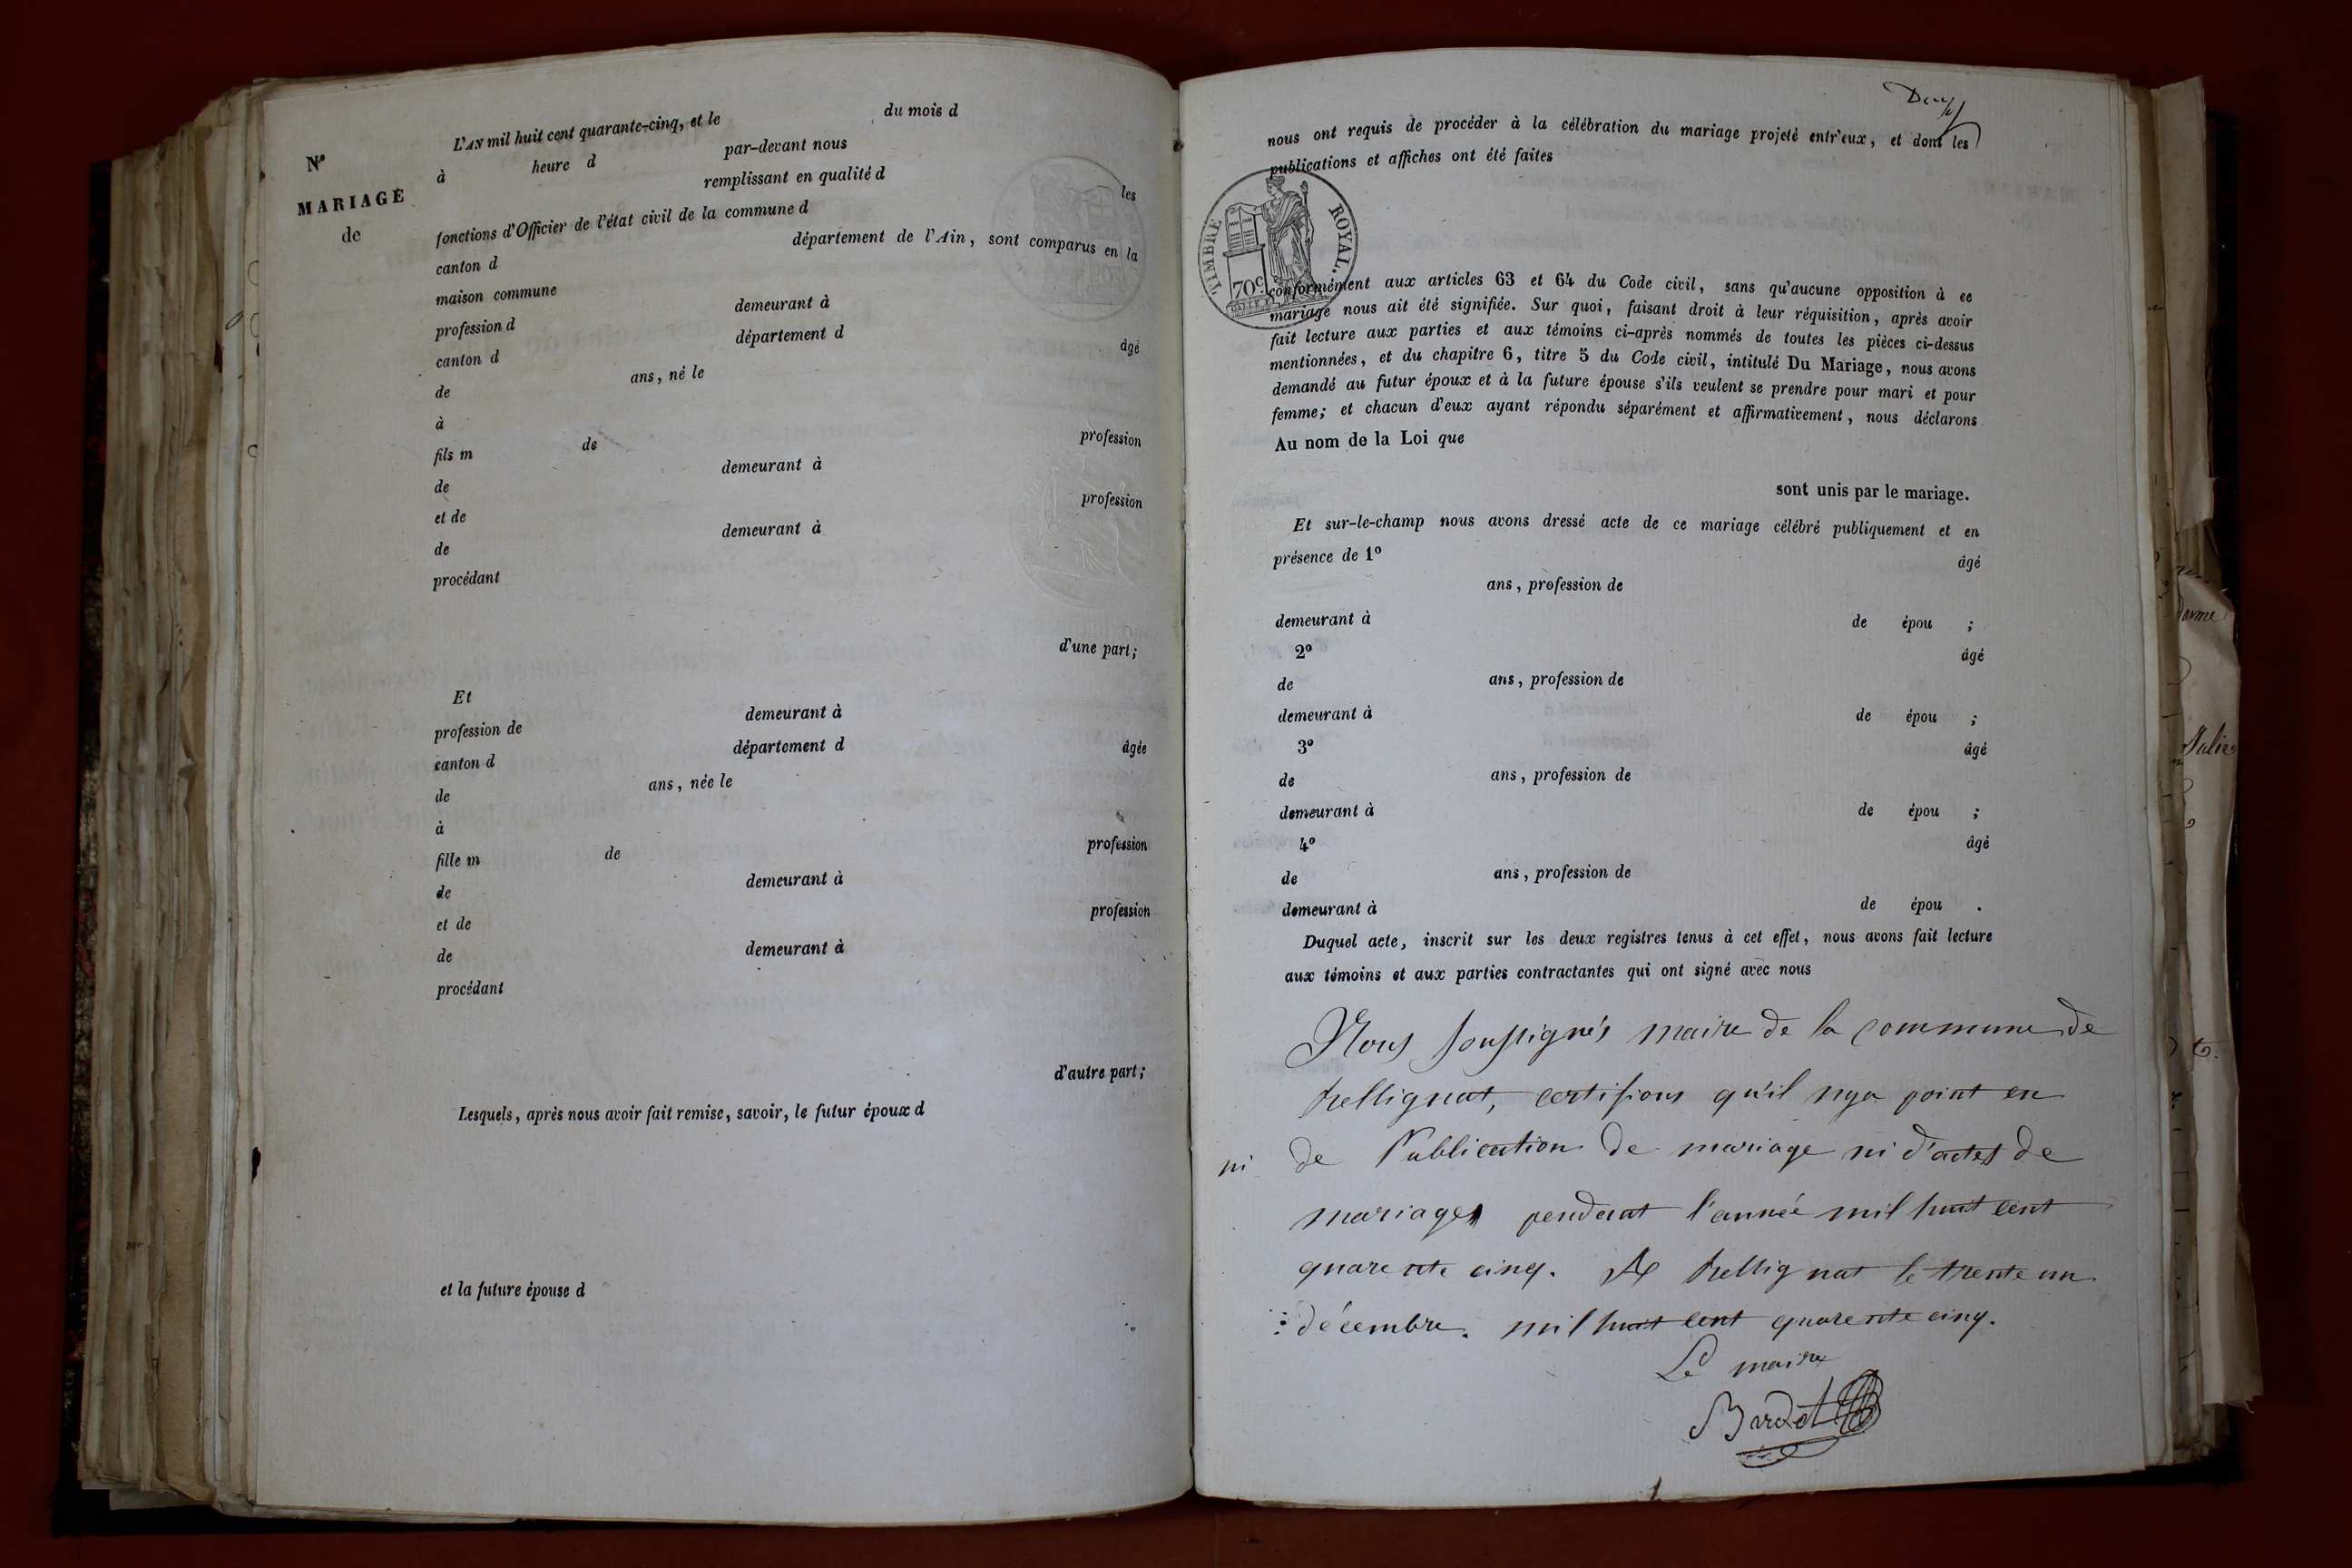 N°
MARIAGE
de
L'AN mil huit cent quarante-cinq, et le du mois d
à heure d par-devant nous
remplissant en qualité d les
fonctions d'Officier de l'état civil de la commune d
canton d département de l'Ain, sont comparus en la
maison commune
profession d demeurant à
canton d département d âgé
de ans, né le
à
fils m de profession
de demeurant à
et de profession
de demeurant à
procédant
d'une part;
Et
profession de demeurant à
canton d département d âgée
de ans, née le
à
fille m de profession
de demeurant à
et de profession
de demeurant à
procédant
d'autre part;
Lesquels, après nous avoir fait remise, savoir, le futur époux d
et la future épouse d
nous ont requis de procéder à la célébration du mariage projeté entr'eux, et dont les
publications et affiches ont été faites
TIMBRE ROYAL.
70c
conformément aux articles 63 et 64 du Code civil, sans qu'aucune opposition à ce
mariage nous ait été signifiée. Sur quoi, faisant droit à leur réquisition, après avoir
fait lecture aux parties et aux témoins ci-après nommés de toutes les pièces ci-dessus
mentionnées, et du chapitre 6, titre 5 du Code civil, intitulé Du Mariage, nous avons
demandé au futur époux et à la future épouse s'ils veulent se prendre pour mari et pour
femme; et chacun d'eux ayant répondu séparément et affirmativement, nous déclarons
Au nom de la Loi que
sont unis par le mariage.
Et sur-le-champ nous avons dressé acte de ce mariage célébré publiquement et en
présence de 1° âgé
ans, profession de
demeurant à de épou ;
2° âgé
de ans, profession de
demeurant à de épou ;
3° âgé
de ans, profession de
demeurant à de épou ;
4° âgé
de ans, profession de
demeurant à de épou .
Duquel acte, inscrit sur les deux registres tenus à cet effet, nous avons fait lecture
aux témoins et aux parties contractantes qui ont signé avec nous
Nous soussignés maire de la commune de
Bellignat, certifions qu'il nya point eu
ni de Publication de mariage ni d'actes de
mariages pendant l'année mil huit cent
quarente cinq. A Bellignat le trente un
décembre. mil huit cent quarente cinq.
Le maire
Bardet